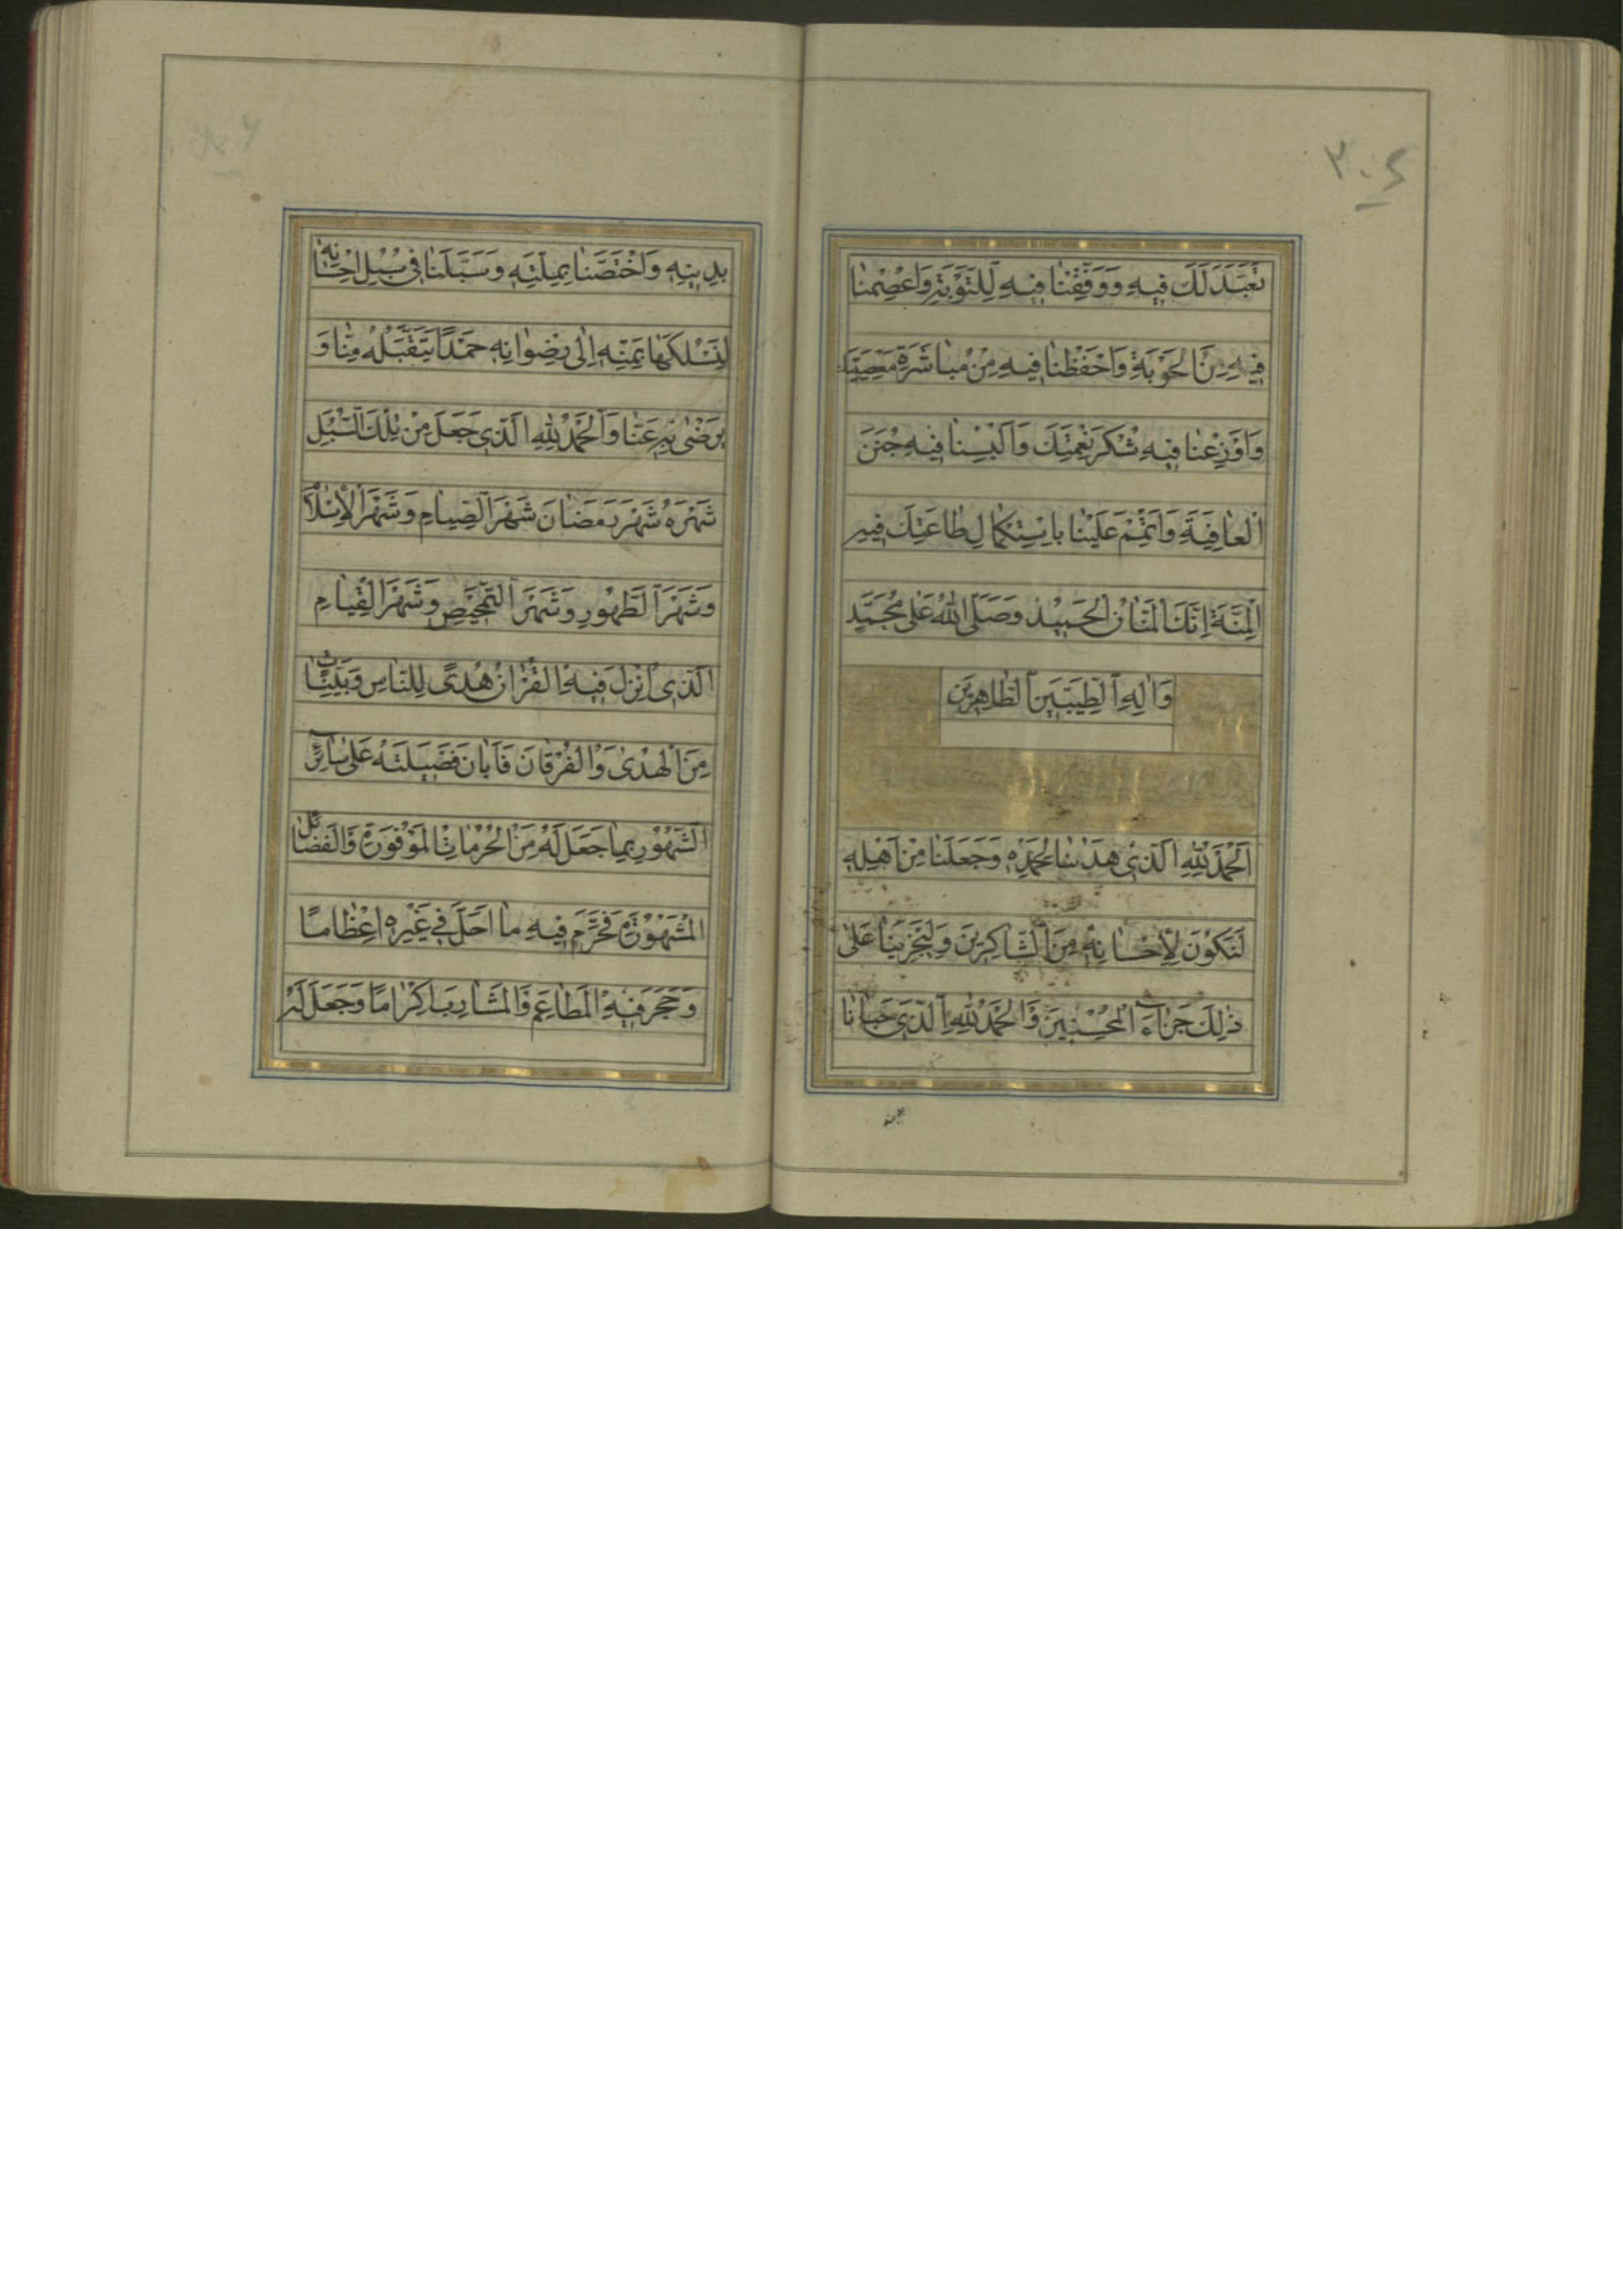 تَعَبَّدَ لَكَ فِيهِ وَوَفِّقْنَا فِيهِ لِلتَّوْبَةِ وَاعْصِمْنَا
فِيهِ مِنَ الْحَوْبَةِ وَاحْفَظْنَا فِيهِ مِنْ مُبَاشَرَةِ مَعْصِيَتِكَ
وَاَوْزِعْنَا فِيهِ شُكْرَ نِعْمَتِكَ وَاَلْبِسْنَا فِيهِ جُنَنَ
الْعَافِيَةِ وَاَتْمِمْ عَلَيْنَا بِاسْتِكْمَالِ طَاعَتِكَ فِيهِ
الْمِنَّةَ اِنَّكَ الْمَنَّانُ الْحَمِيدُ وَصَلَّى اللهُ عَلَى مُحَمَّدٍ
وَالِهِ الطَّيِّبِينَ الطَّاهِرِينَ
اَلْحَمْدُ لِلّٰهِ الَّذِي هَدَانَا لِحَمْدِهِ وَجَعَلَنَا مِنْ اَهْلِهِ
لِنَكُونَ لِاِحْسَانِهِ مِنَ الشَّاكِرِينَ وَلِيَجْزِيَنَا عَلَى
ذٰلِكَ جَزَاءَ الْمُحْسِنِينَ وَالْحَمْدُ لِلّٰهِ الَّذِي حَبَانَا
بِدِينِهِ وَاخْتَصَّنَا بِمِلَّتِهِ وَسَبَّلَنَا فِي سُبُلِ اِحْسَانِهِ
لِنَسْلُكَهَا بِمَنِّهِ اِلَى رِضْوَانِهِ حَمْدًا يَتَقَبَّلُهُ مِنَّا وَ
يَرْضَى بِهِ عَنَّا وَالْحَمْدُ لِلّٰهِ الَّذِي جَعَلَ مِنْ تِلْكَ السُّبُلِ
شَهْرَهُ شَهْرَ رَمَضَانَ شَهْرَ الصِّيَامِ وَشَهْرَ الْاِسْلَامِ
وَشَهْرَ الطَّهُورِ وَشَهْرَ التَّمْحِيصِ وَشَهْرَ الْقِيَامِ
الَّذِي اُنْزِلَ فِيهِ الْقُرْاٰنُ هُدًى لِلنَّاسِ وَبَيِّنَاتٍ
مِنَ الْهُدَى وَالْفُرْقَانِ فَاَبَانَ فَضِيلَتَهُ عَلَى سَائِرِ
الشُّهُورِ بِمَا جَعَلَ لَهُ مِنَ الْحُرُمَاتِ الْمَوْفُورَةِ وَالْفَضَائِلِ
الْمَشْهُورَةِ فَحَرَّمَ فِيهِ مَا اَحَلَّ فِي غَيْرِهِ اِعْظَامًا
وَحَجَرَ فِيهِ الْمَطَاعِمَ وَالْمَشَارِبَ اِكْرَامًا وَجَعَلَ لَهُ